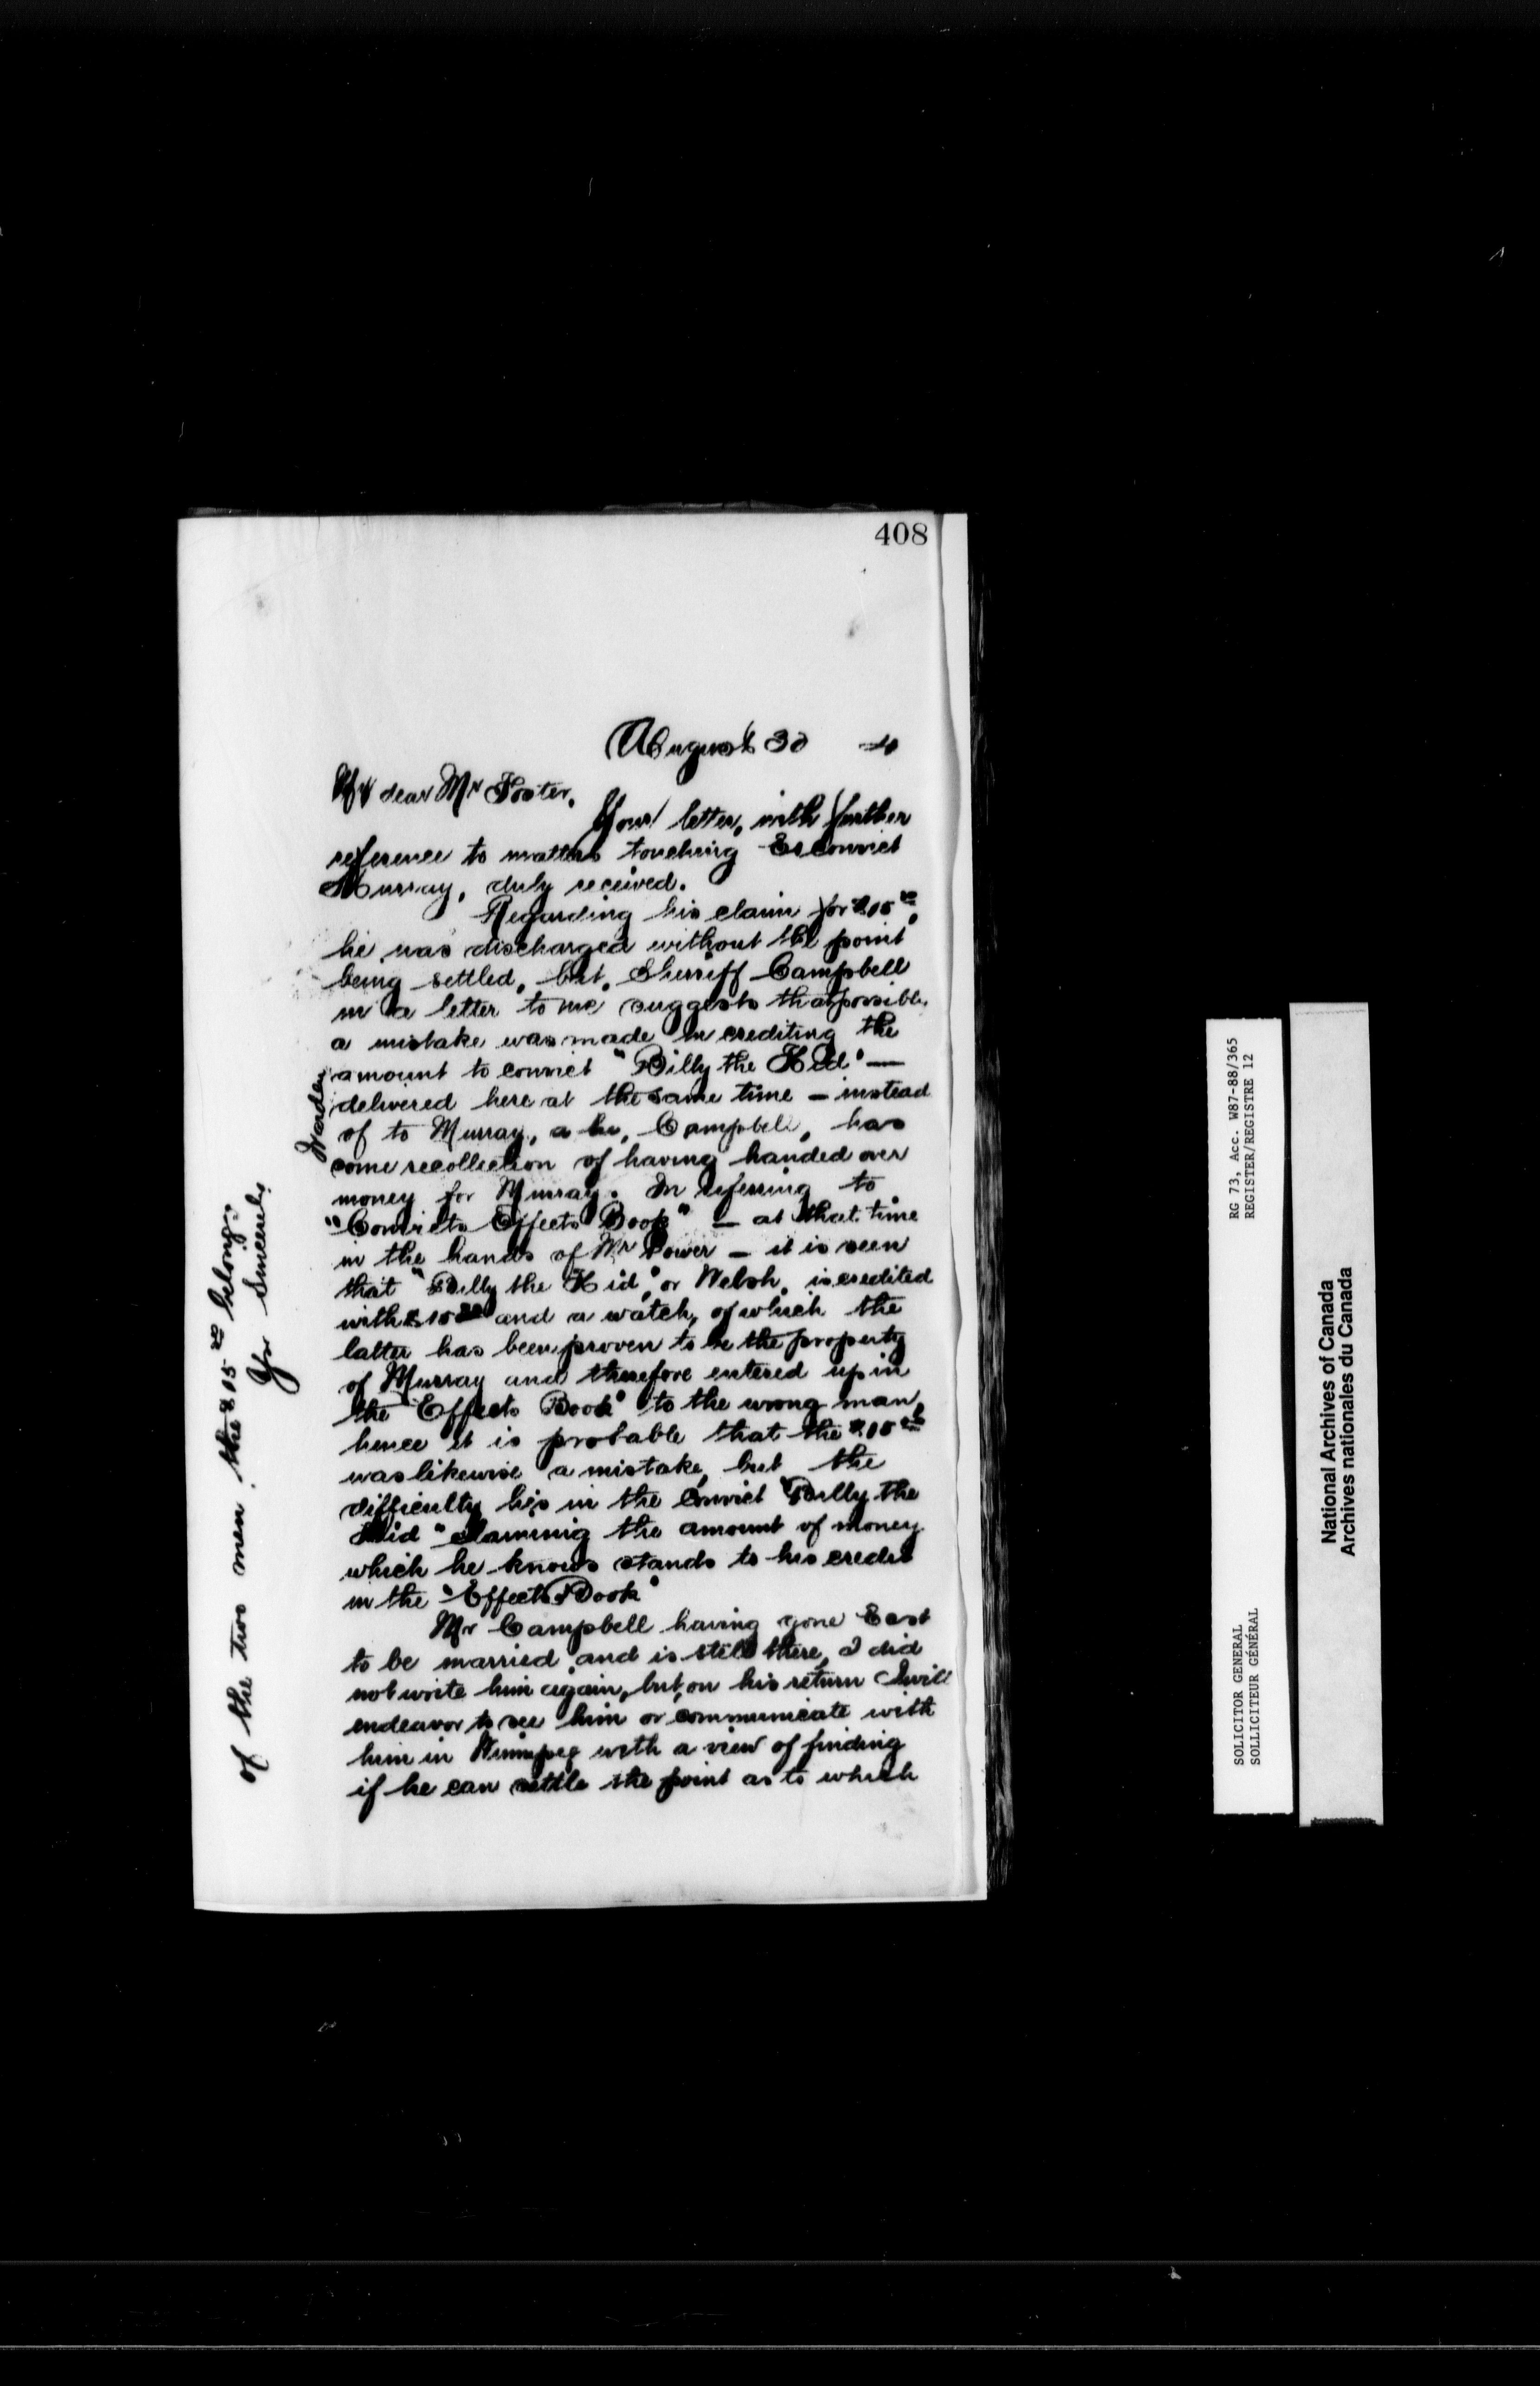 408
August 30
My dear Mr Foster,
Your letter, with further
reference to matters touching Exconvict
Murray, duly received.
Regarding his claim for $15 00,
he was discharged without the point
being settled, but, Sherriff Campbell
in a letter to me suggests that possibly
a mistake was made in crediting the
amount to convict "Billy the Kid" —
delivered here at the same time — instead
of to Murray, as he, Campbell, has
some recollection of having handed over
money for Murray. In referring to
"Convicts Effects Book" — at that time
in the hands of Mr Power — it is seen
that "Billy the Kid", or Welsh, is credited
with $15 00 and a watch, of which the
latter has been proven to be the property
of Murray and therefore entered up in
the "Effects Book" to the wrong man,
hence it is probable that the $15 00
was likewise a mistake, but the
difficulty lies in the convict "Billy the
Kid" claiming the amount of money
which he knows stands to his credit
in the "Effects Book"
Mr Campbell having gone East
to be married, and is still there, I did
not write him again, but, on his return I will
endeavor to see him or communicate with
him in Winnipeg with a view of finding
if he can settle the point as to which
of the two men the $15 00 belongs
Yrs Sincerely
Warden
SOLICITOR GENERAL
SOLLICITEUR GÉNÉRAL
RG 73, Acc. W87-88/365
REGISTER/REGISTRE 12
National Archives of Canada
Archives nationales du Canada